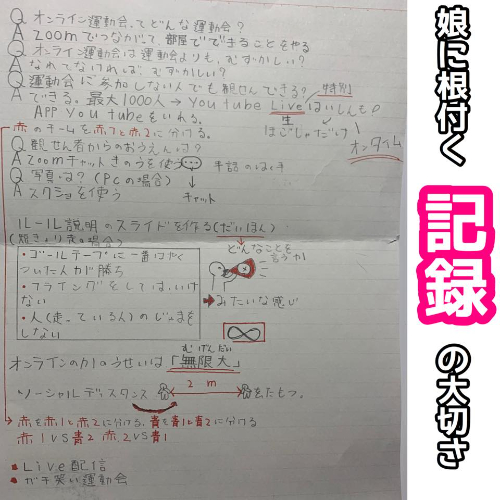 Q オンライン運動会ってどんな運動会？
A Zoomでつながって、部屋でできることをやる
Q オンライン運動会は運動会よりも、むずかしい？
A なれてなければ むずかしい？
Q 運動会に参加しない人でも観せんできる？
A できる。最大1000人→YouTube Liveはいしんも
特別
生
ほごしゃだけ
APP YouTubeをいれる。
オンタイム
赤のチームを赤1と赤2に分ける。
Q 観せん者からのおうえんは？
A Zoomチャットきのうを使う
手話のはく手
Q 写真は？(PCの場合)
チャット
A スクショを使う
ルール説明のスライドを作る(だいほん)
(短きょり走の場合)
どんなことを言うか
・ゴールテープに一番はやくついた人が勝ち
・フライングをしてはいけない
・人(走っている人)のじゃまをしない
みたいな感じ
∞
むげんだい
オンラインのかのうせいは「無限大」
ソーシャルディスタンス
2 m
をたもつ。
赤を赤1と赤2に分ける、青を青1と青2に分ける
赤1VS青2 赤2VS青1
・Live配信
・ガチ笑い運動会
娘に根付く
記録
の大切さ